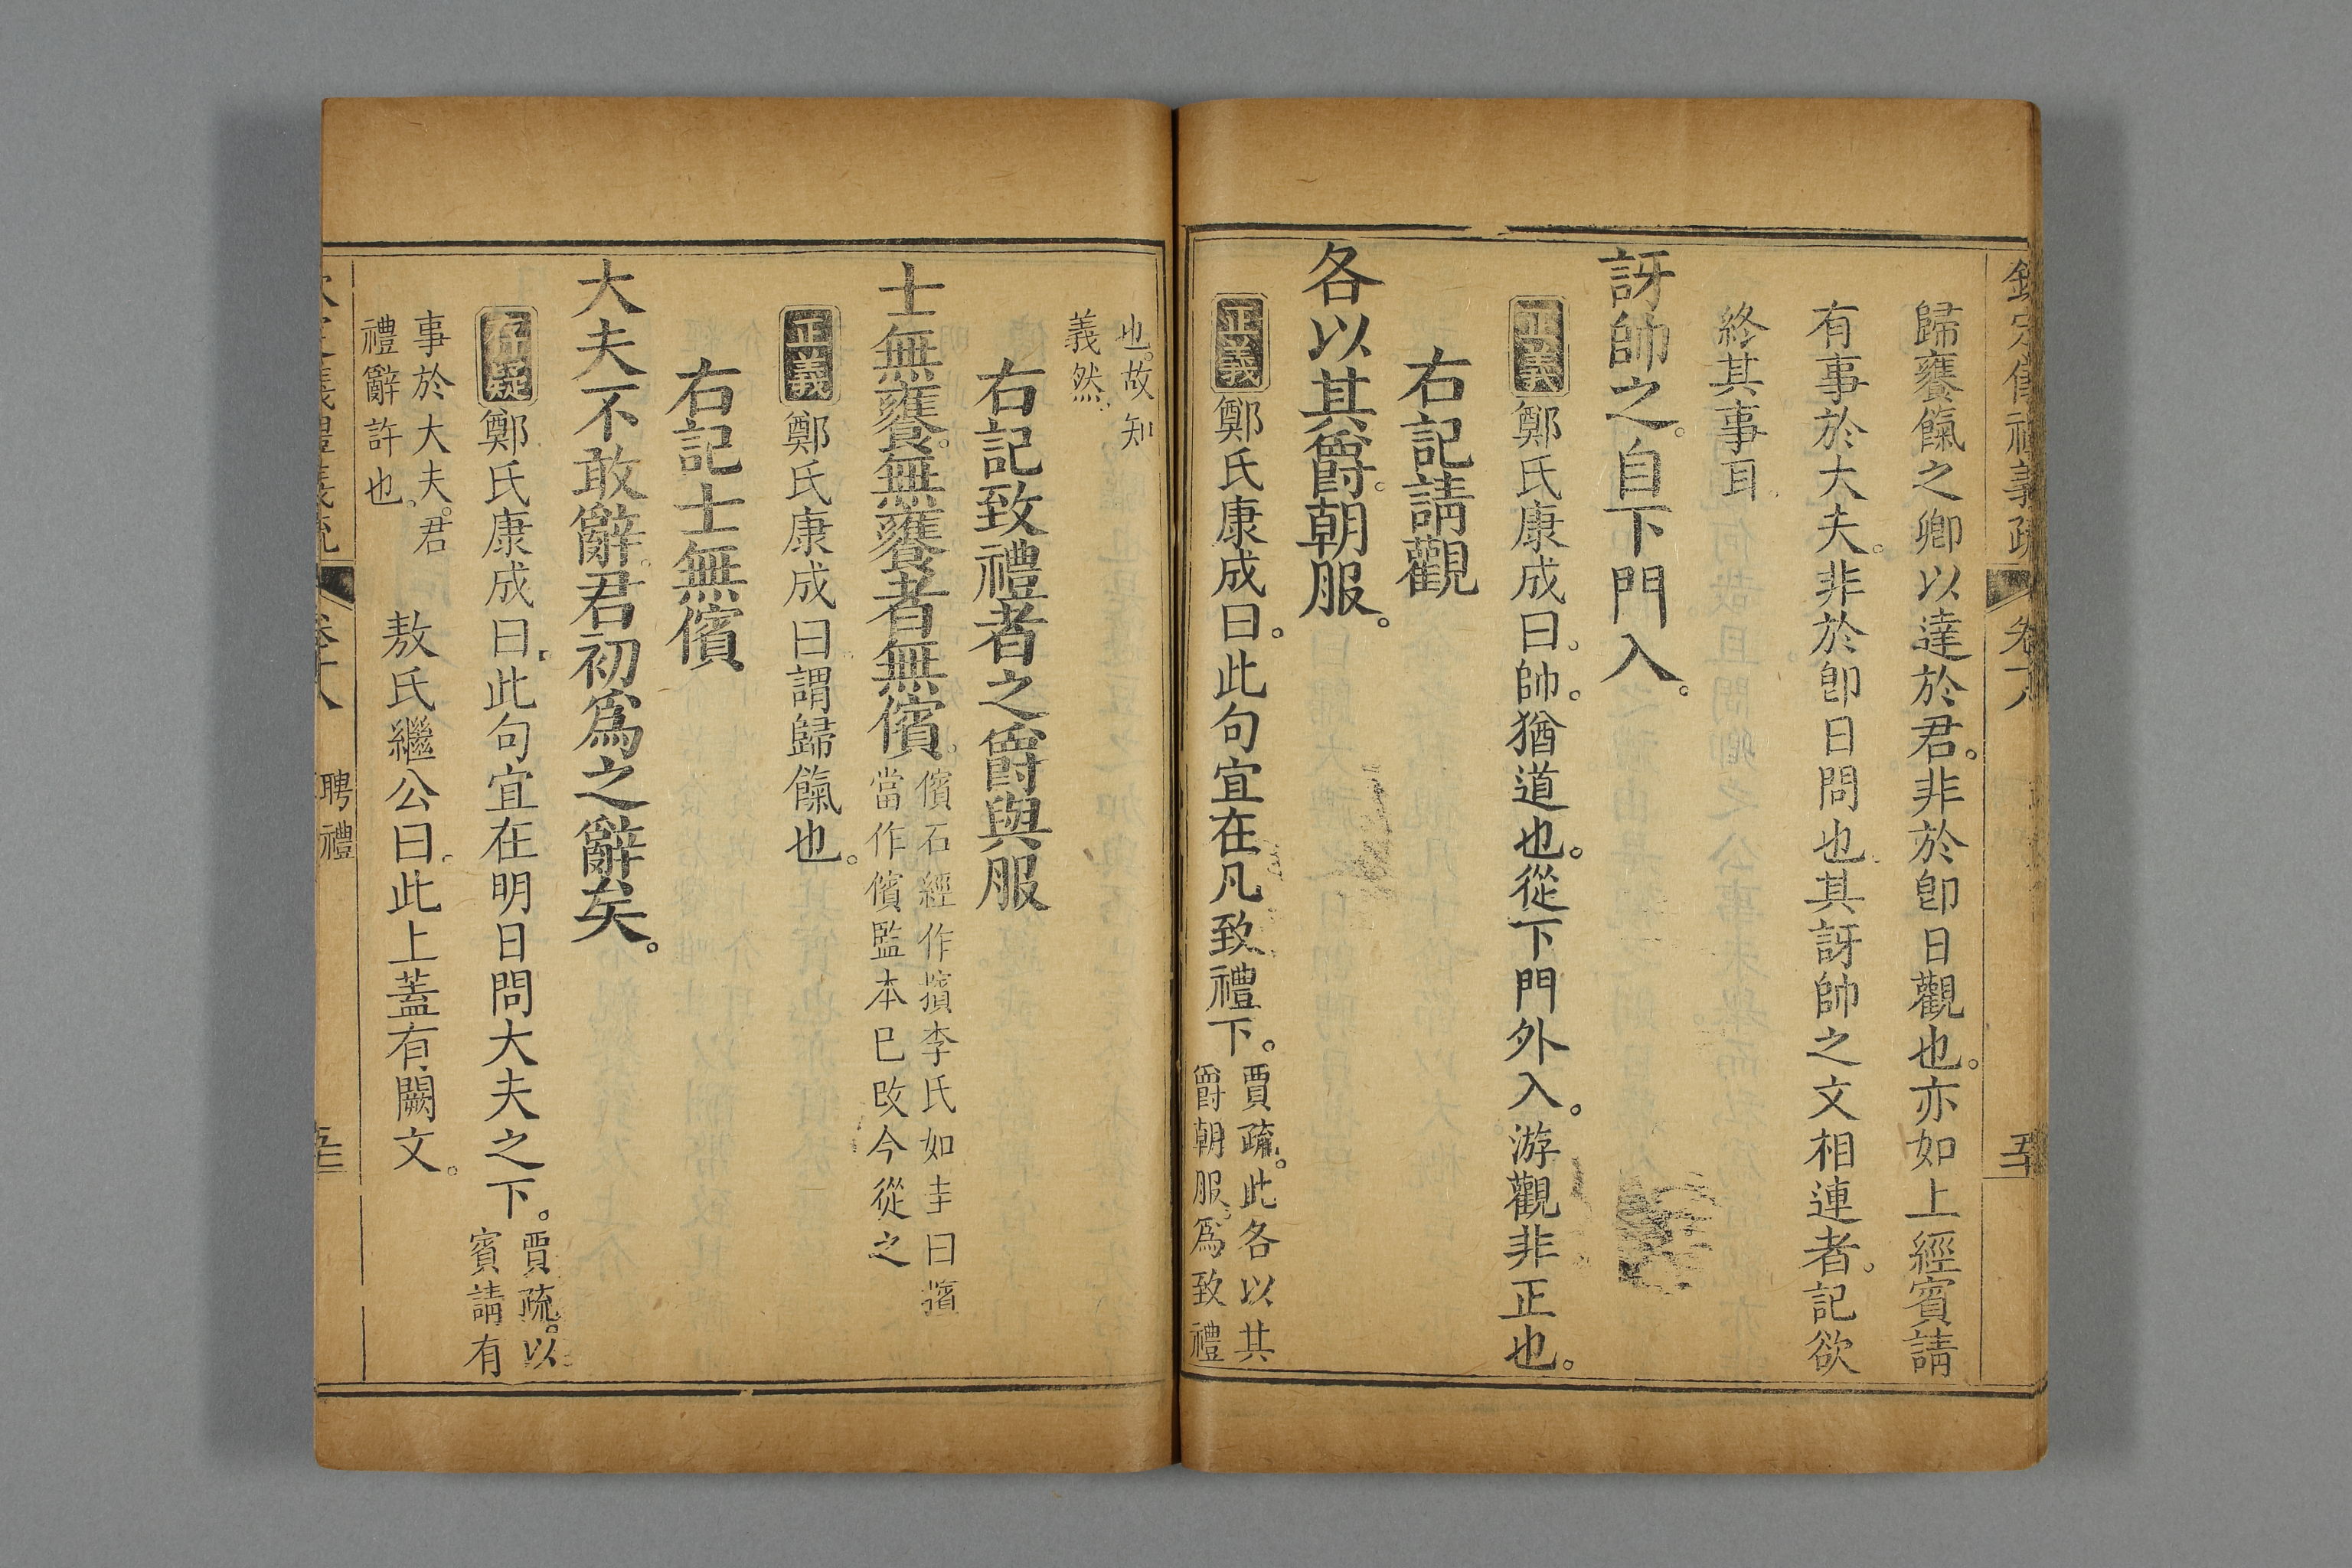 欽定儀禮義疏 卷十八
歸饔餼之卿以達於君。非於卽日觀也。亦如上經賓請
有事於大夫。非於卽日問也。其訝帥之文相連者。記欲
終其事耳。
訝帥之。自下門入。
正義 鄭氏康成曰。帥。猶道也。從下門外入。游觀非正也。
右記請觀
各以其爵。朝服。
正義 鄭氏康成曰。此句宜在凡致禮下。
賈疏。此各以其
爵朝服。爲致禮
也。故知
義然。
右記致禮者之爵與服
士無饔。無饔者無儐。
儐石經作擯李氏如圭曰擯
當作儐監本已改今從之
正義 鄭氏康成曰。謂歸餼也。
右記士無儐
大夫不敢辭。君初爲之辭矣。
存疑 鄭氏康成曰。此句宜在明日問大夫之下。
賈疏。以
賓請有
事於大夫。君
禮辭許也。
敖氏繼公曰。此上蓋有闕文。
欽定儀禮義疏 卷十八
聘禮